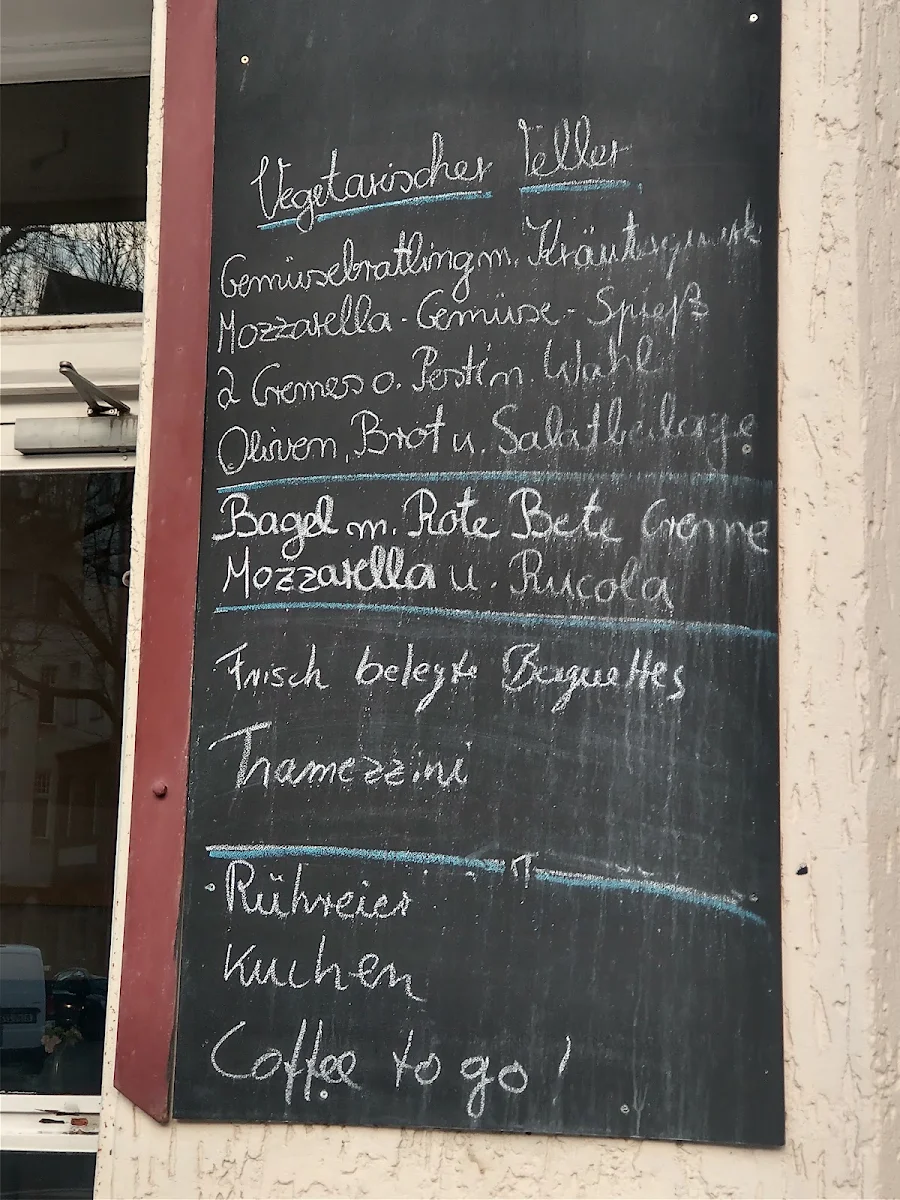 Vegetarischer Teller
Gemüsebratling m. Kräuterquark
Mozzarella-Gemüse-Spieß
2 Cremes o. Pesti n. Wahl
Oliven, Brot u. Salatbeilage
Bagel m. Rote Bete Creme
Mozzarella u. Rucola
Frisch belegte Baguettes
Tramezzini
Rühreier
Kuchen
Coffee to go!